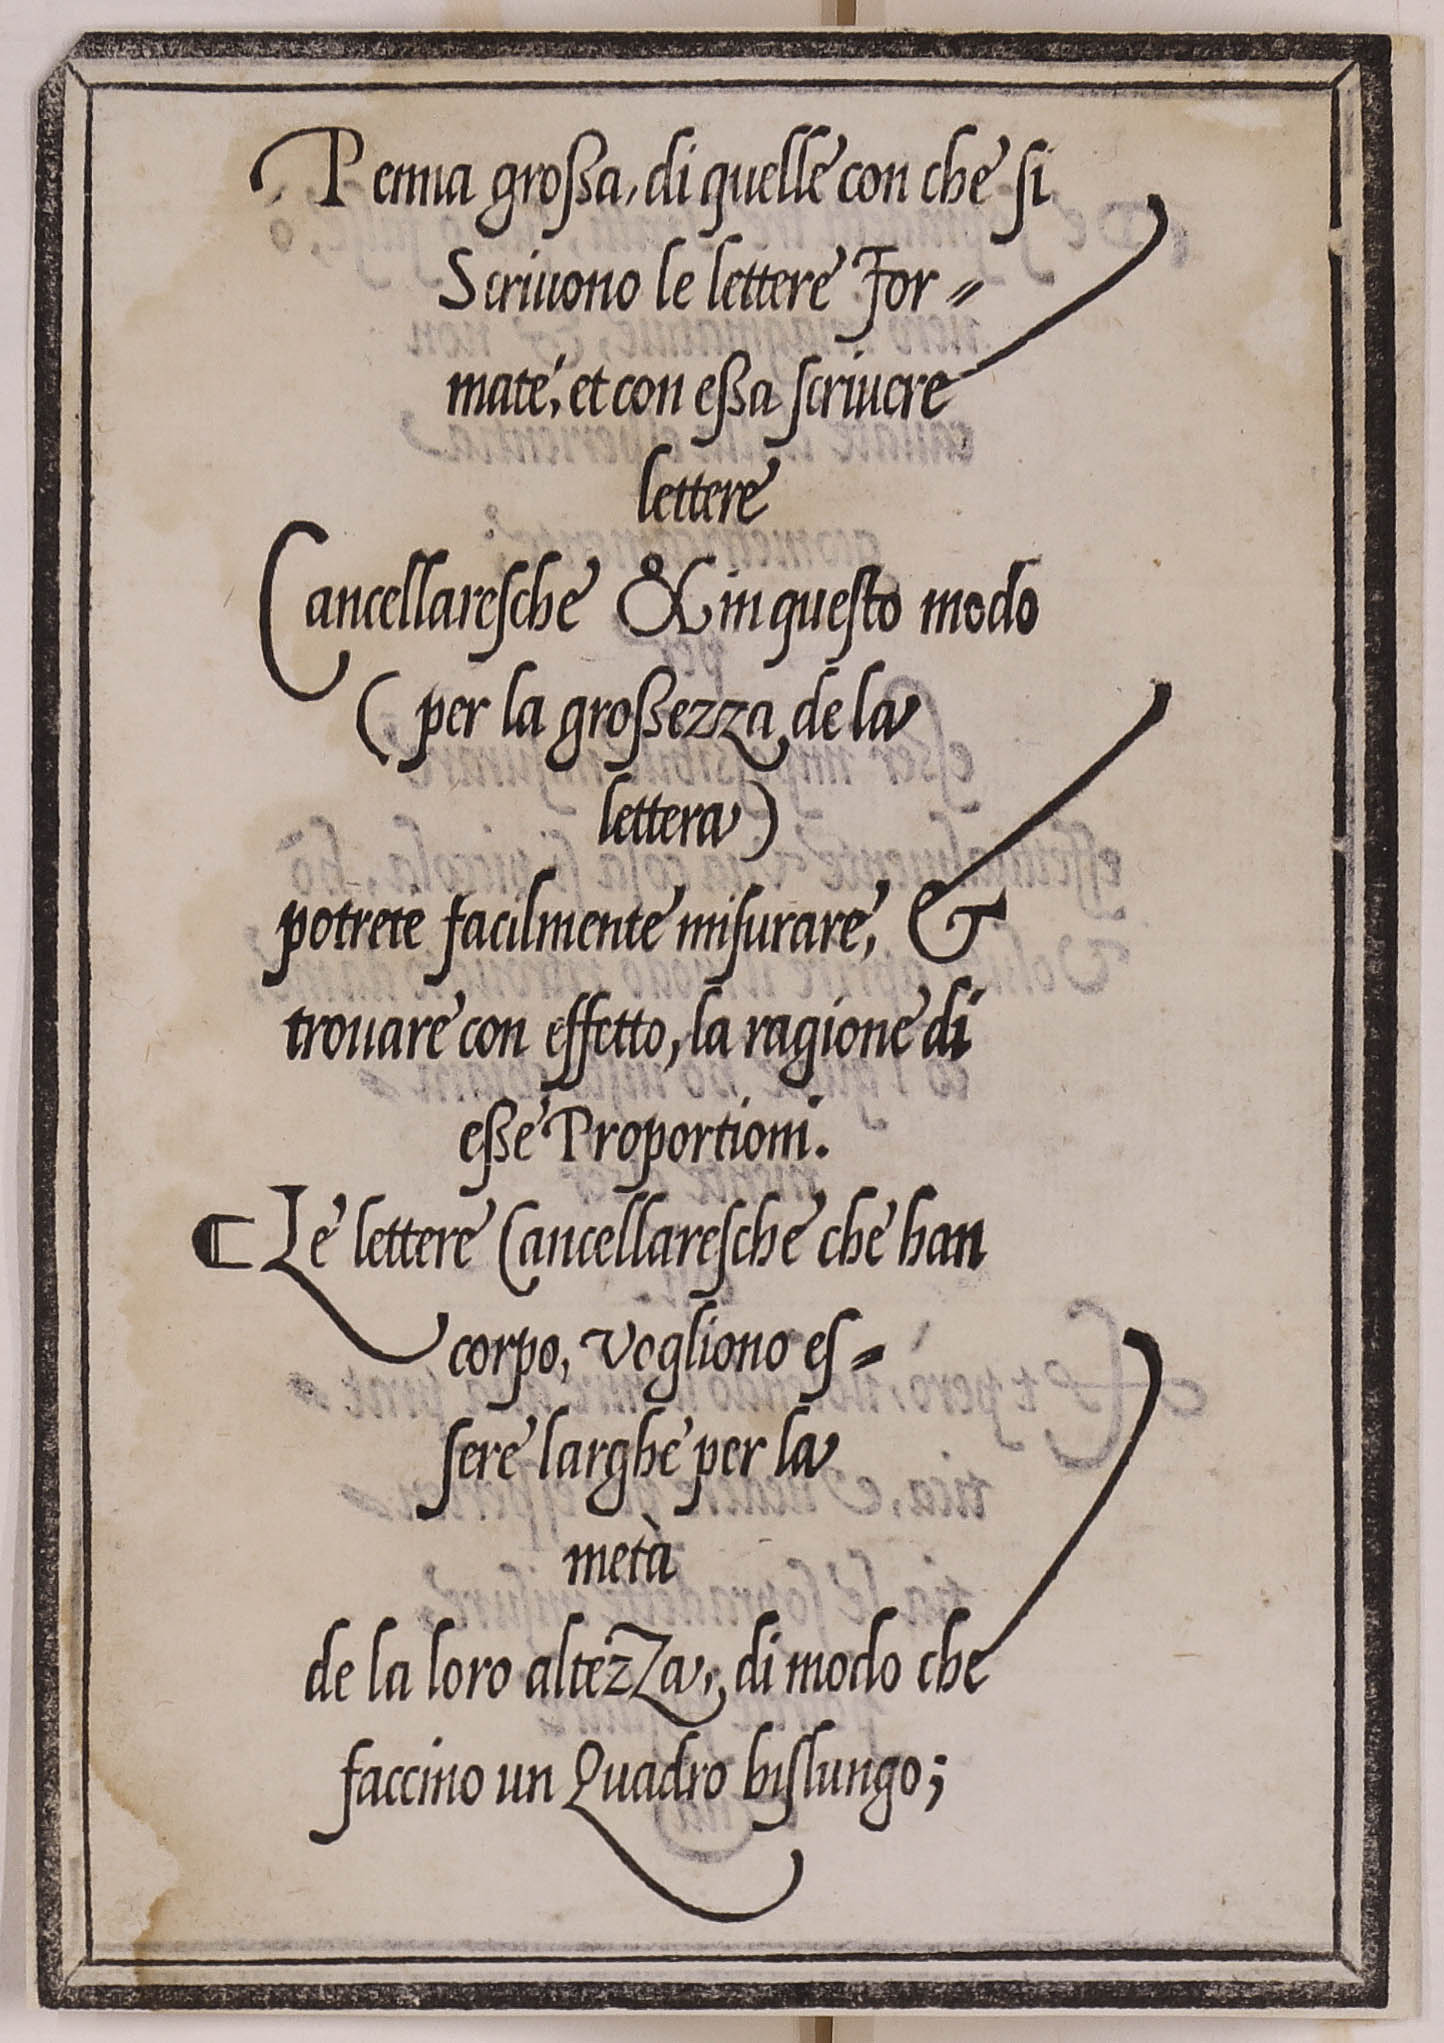 Penna große, di quelle con che si
Scriuono le lettere For=
mate, et con eßa scriuere
lettere
Cancellaresche & in questo modo
( per la großezza de la
lettera )
potrete facilmente misurare, &
trouare con effetto, la ragione di
eße Proportioni.
⸿ Le lettere Cancellaresche che han
corpo, vogliono eſ=
ſere larghe per la
metà
de la loro altezza, di modo che
faccino un Quadro bislungo;